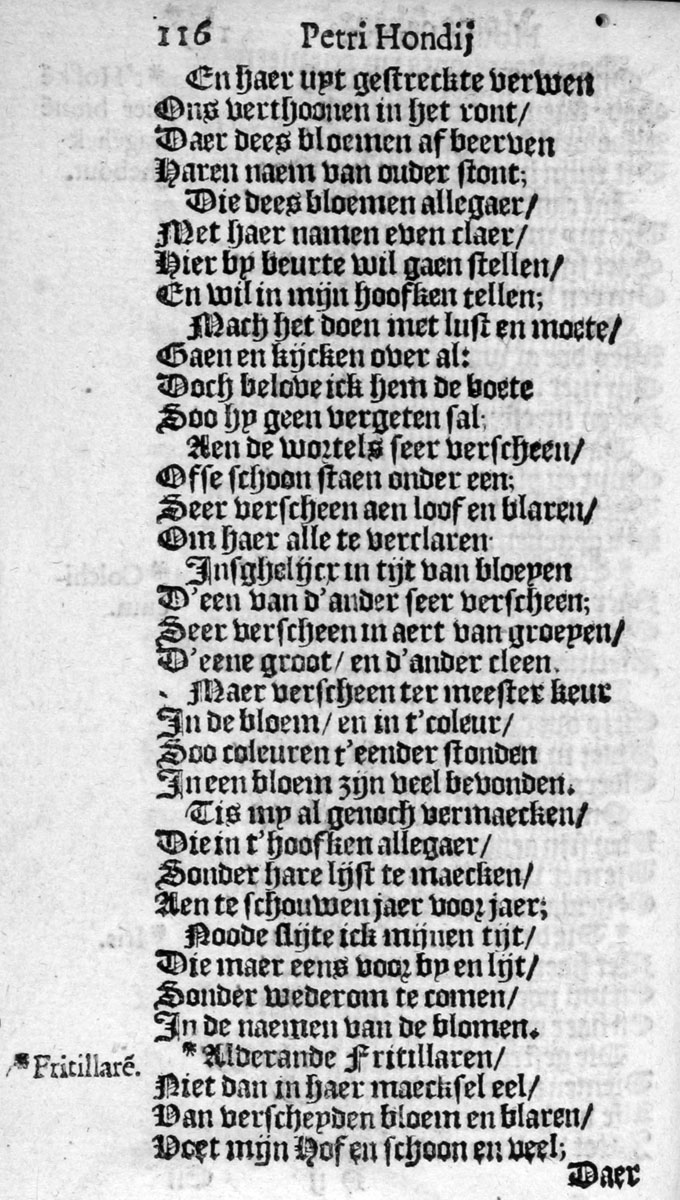 116 Petri Hondij
En haer uyt gestreckte verwen
Ons verthoonen in het ront/
Daer dees bloemen af beerven
Haren naem van ouder stont;
Die dees bloemen allegaer/
Met haer namen even claer/
Hier by beurte wil gaen stellen/
En wil in mijn hoofken tellen;
Mach het doen met lust en moete/
Gaen en kijcken over al:
Doch belove ick hem de boete
Soo hy geen vergeten sal;
Aen de wortels seer verscheen/
Ofse schoon staen onder een;
Seer verscheen aen loof en blaren/
Om haer alle te verclaren.
Insghelijcx in tijt van bloeyen
D'een van d'ander seer verscheen;
Seer verscheen in aert van groeyen/
D'eene groot/ en d'ander cleen.
Maer verscheen ter meester keur
In de bloem/ en in t'coleur/
Soo coleuren t'eender stonden
In een bloem zijn veel bevonden.
Tis my al genoch vermaecken/
Die in t'hoofken allegaer/
Sonder hare lijst te maecken/
Aen te schouwen jaer voor jaer;
Noode slijte ick mijnen tijt/
Die maer eens voor by en lijt/
Sonder wederom te comen/
In de naemen van de blomen.
*Fritillarē. *Alderande Fritillaren/
Niet dan in haer maecksel eel/
Van verscheyden bloem en blaren/
Voet mijn Hof en schoon en veel;
Daer